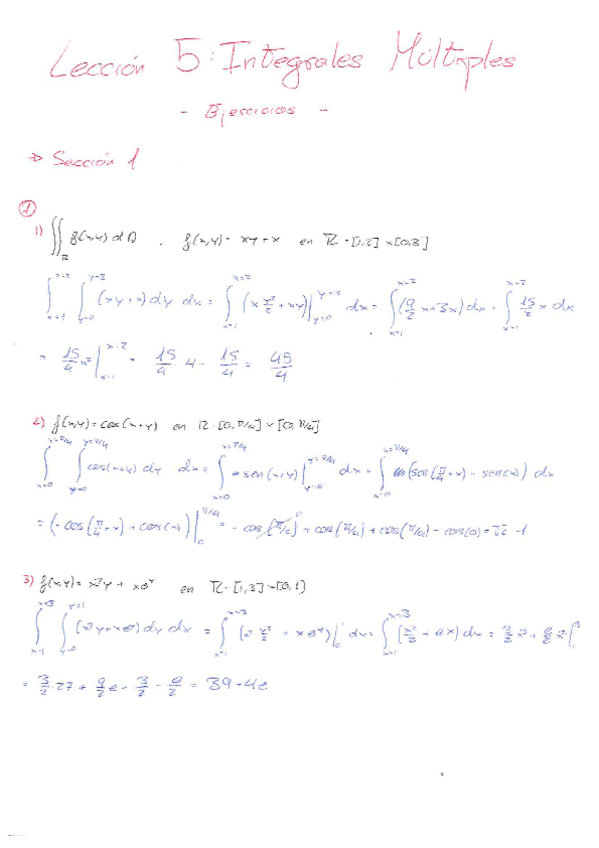 Lección 5: Integrales Múltiples
- Ejercicios -
→ Sección 1
①
1) ∬_R f(x,y) dA , f(x,y) = xy + x en R = [1,2] × [0,3]
∫_{x=1}^{x=2} ∫_{y=0}^{y=3} (xy + x) dy dx = ∫_{x=1}^{x=2} (x y²/2 + xy)|_{y=0}^{y=3} dx = ∫_{x=1}^{x=2} (9/2 x + 3x) dx = ∫_{x=1}^{x=2} 15/2 x dx
= 15/4 x²|_{x=1}^{x=2} = 15/4 · 4 - 15/4 = 45/4
2) f(x,y) = cos(x+y) en R = [0,π/4] × [0,π/4]
∫_{x=0}^{x=π/4} ∫_{y=0}^{y=π/4} cos(x+y) dy dx = ∫_{x=0}^{x=π/4} sen(x+y)|_{y=0}^{y=π/4} dx = ∫_{x=0}^{x=π/4} (sen(π/4 + x) - sen(x)) dx
= (-cos(π/4 + x) + cos(x))|_0^{π/4} = -cos(π/2) + cos(π/4) + cos(π/4) - cos(0) = √2 - 1
3) f(x,y) = x²y + xe^y en R = [1,3] × [0,1]
∫_{x=1}^{x=3} ∫_{y=0}^{y=1} (x²y + xe^y) dy dx = ∫_{x=1}^{x=3} (x² y²/2 + xe^y)|_0^1 dx = ∫_{x=1}^{x=3}
= 3/2 · 27 + 9/2 e - 3/2 - e/2 = 39 + 4e